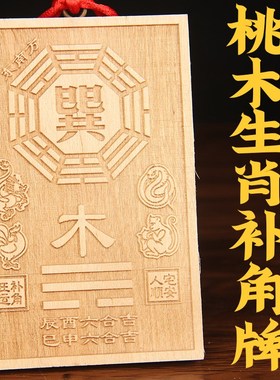 桃木生肖补角牌
东南方
巽
木
补角
宅安
人顺
辰酉六合吉
巳申六合吉